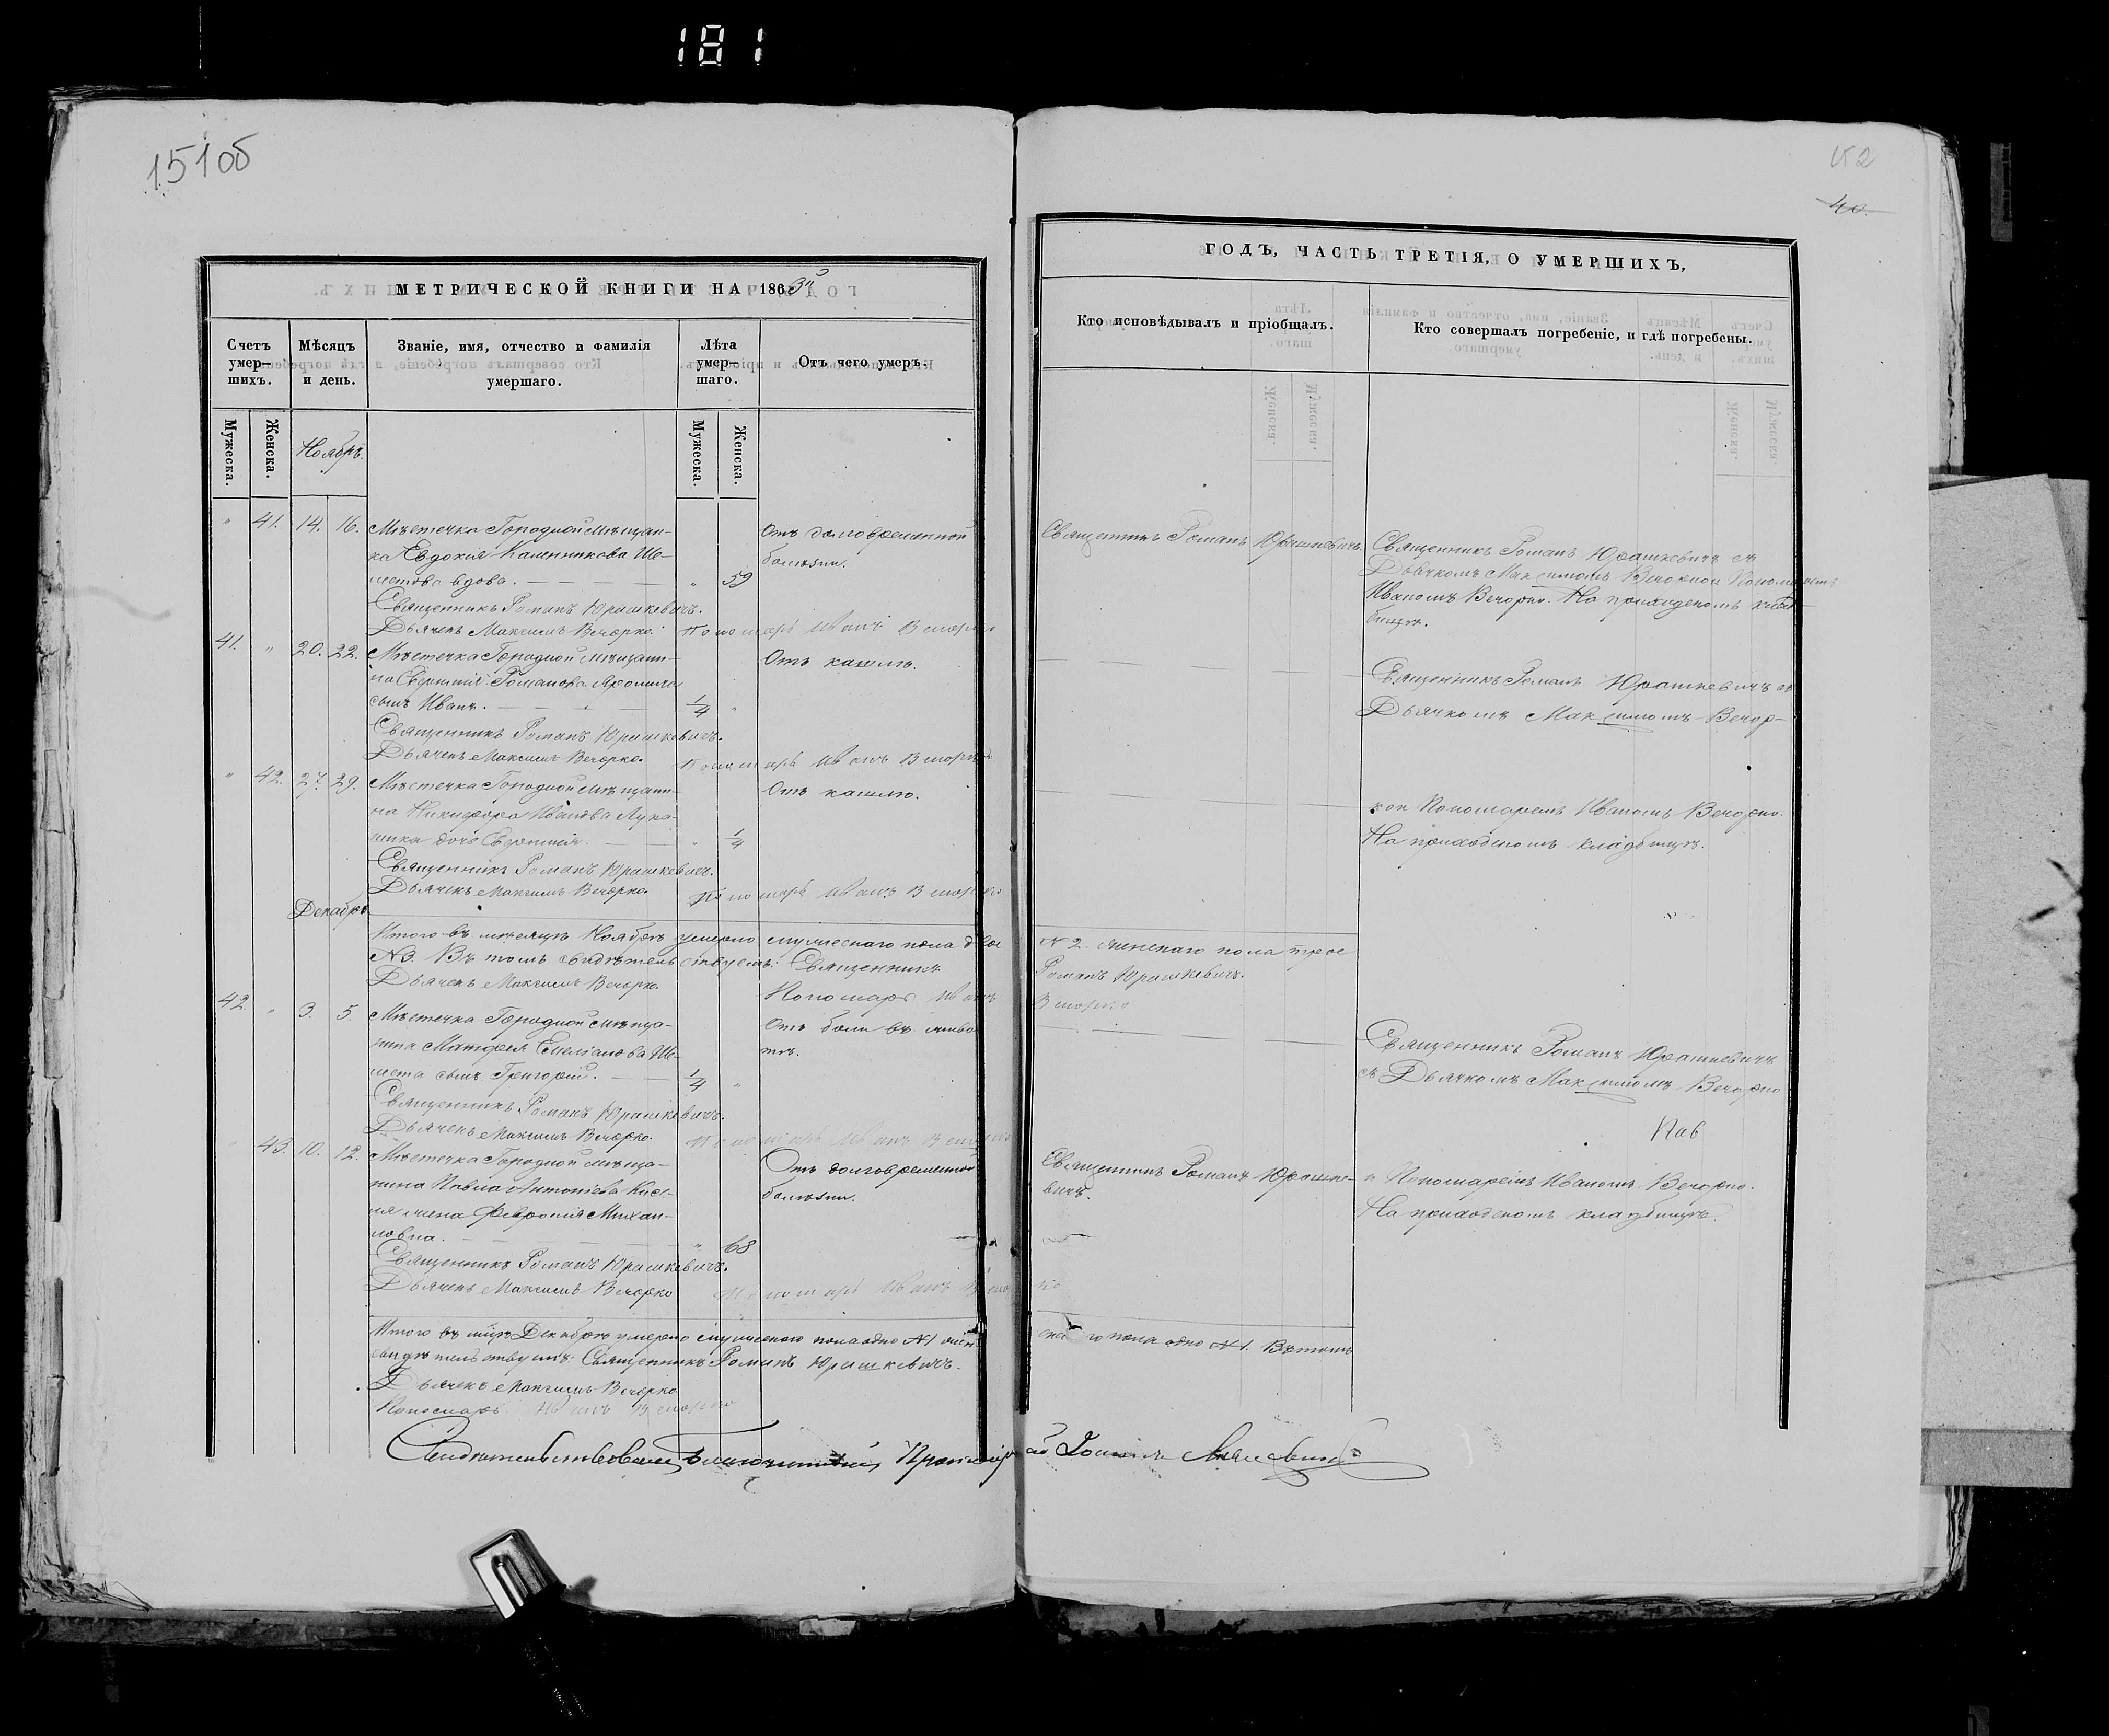 181
151об
152
40
МЕТРИЧЕСКОЙ КНИГИ НА 1863й
ГОДЪ, ЧАСТЬ ТРЕТІЯ, О УМЕРШИХЪ,
Счетъ умер-шихъ.
Мѣсяцъ и день.
Званіе, имя, отчество и фамилія умершаго.
Лѣта умер-шаго.
Отъ чего умеръ.
Кто исповѣдывалъ и пріобщалъ.
Кто совершалъ погребеніе, и гдѣ погребены.
Мужеска.
Женска.
Ноябрь.
Мужеска.
Женска.
" 41. 14. 16. Мѣстечка Городной мѣщан-
ка Евдокія Калинникова Ше-
метова вдова. " 59
Отъ долговременной
болѣзни.
Священникъ Романъ Юрашкевичъ.
Священникъ Романъ Юрашкевичъ съ
Дьячкомъ Максимомъ Вечоркой Пономаремъ
Иваномъ Вечорко. На приходскомъ клад-
бищѣ.
Священникъ Романъ Юрашкевичъ.
Дьячекъ Максимъ Вечорко. Пономарь Иванъ Вечорко
41. " 20. 22. Мѣстечка Городной мѣщани-
на Романова
сынъ Иванъ. 1/4 "
Отъ кашлю.
Священникъ Романъ Юрашкевичъ съ
Дьячкомъ Максимомъ Вечор-
Священникъ Романъ Юрашкевичъ.
Дьячекъ Максимъ Вечорко. Пономарь Иванъ Вечорко
" 42. 27. 29. Мѣстечка Городной мѣщани-
на Никифора Иванова Лука-
шика дочь Евфимія. " 1/4
Отъ кашлю.
кой Пономаремъ Иваномъ Вечорко.
На приходскомъ кладбищѣ.
Священникъ Романъ Юрашкевичъ.
Дьячекъ Максимъ Вечорко. Пономарь Иванъ Вечорко
Декабрь
Итого въ мѣсяцѣ Ноябрѣ умерло мужескаго пола двое № 2. женскаго пола трое
№ 3. Въ томъ свидѣтельствуемъ: Священникъ Романъ Юрашкевичъ.
Дьячекъ Максимъ Вечорко.
Пономарь Иванъ Вечорко
42. " 3. 5. Мѣстечка Городной мѣща-
нина Матфея Емеліанова Ше-
мета сынъ Григорій. 1/4 "
Отъ боли въ живо-
тѣ.
Священникъ Романъ Юрашкевичъ
съ Дьячкомъ Максимомъ Вечорко
Священникъ Романъ Юрашкевичъ.
Дьячекъ Максимъ Вечорко. Пономарь Иванъ Вечорко
43. 10. 12. Мѣстечка Городной мѣща-
нина Павла Антоніева
жена Февронія Михаи-
ловна. " 68
Отъ долговременной
болѣзни.
Священникъ Романъ Юрашке-
вичъ.
и Пономаремъ Иваномъ Вечорко.
На приходскомъ кладбищѣ.
Священникъ Романъ Юрашкевичъ.
Дьячекъ Максимъ Вечорко Пономарь Иванъ Вечорко
Итого въ мцѣ Декабрѣ умерло мужескаго пола одно № 1 женскаго пола одно № 1. Въ томъ
свидѣтельствуемъ: Священникъ Романъ Юрашкевичъ.
Дьячекъ Максимъ Вечорко
Пономарь Иванъ Вечорко
Свидѣтельствовалъ Благочинный Протоіерей